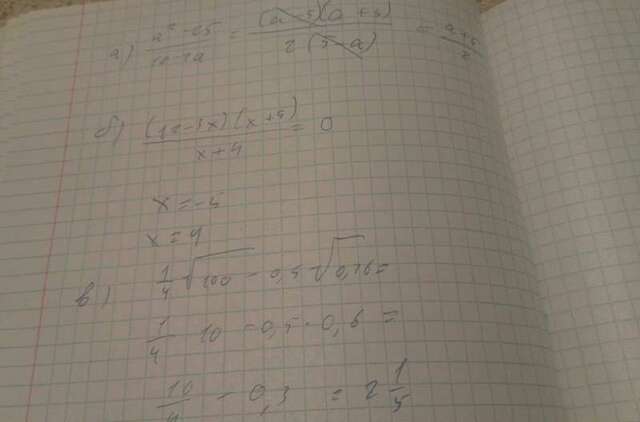 а) (a² - 25)/(10 - 2a) = ((a - 5)(a + 5))/(2(5 - a)) = (a+5)/2
б) ((12 - 3x)(x+4))/(x+4) = 0
x = -4
x = 4
в) 1/4 √100 - 0,5 √0,36 =
1/4 · 10 - 0,5 · 0,6 =
10/4 - 0,3 = 2 1/5